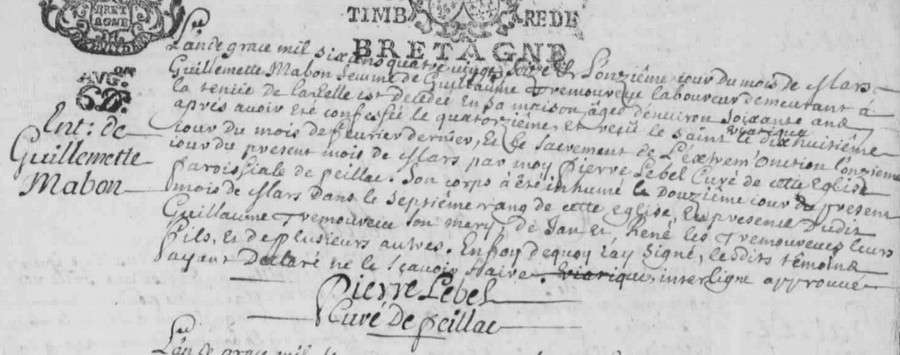 BRET
AGNE
TIMB REDE
BRETAGNE
Ent: de
Guillemette
Mabon
L'an de grace mil six cens quatre vingt L'onzième jour du mois de Mars
Guillemette Mabon femme de Guillaume Tremoureuc laboureur demeurant à
la tenüe de est decedée en sa maison âgée d'environ soixante ans
après avoir été confessée le quatorzième, et reçû le saint viatique le dixhuitième
jour du mois de feurier dernier, Et le sacrement de L'extrem'onction l'onzieme
jour du present mois de Mars par moy Pierre Lebel Curé de cette Eglise
paroissiale de Peillac. Son corps à été inhumé le Douzième jour du present
mois de Mars dans le septieme rang de cette eglise, En presence dudit
Guillaume Tremoureuc son mary, de Jan et René les Tremoureucs leurs
fils, Et de plusieurs autres. En foy dequoy j'ay signé, lesdits têmoins
ayant Declaré ne le sçavoir faire viatique, interligne approuvé
Pierre Lebel
Curé De Peillac
L'an de grace mil